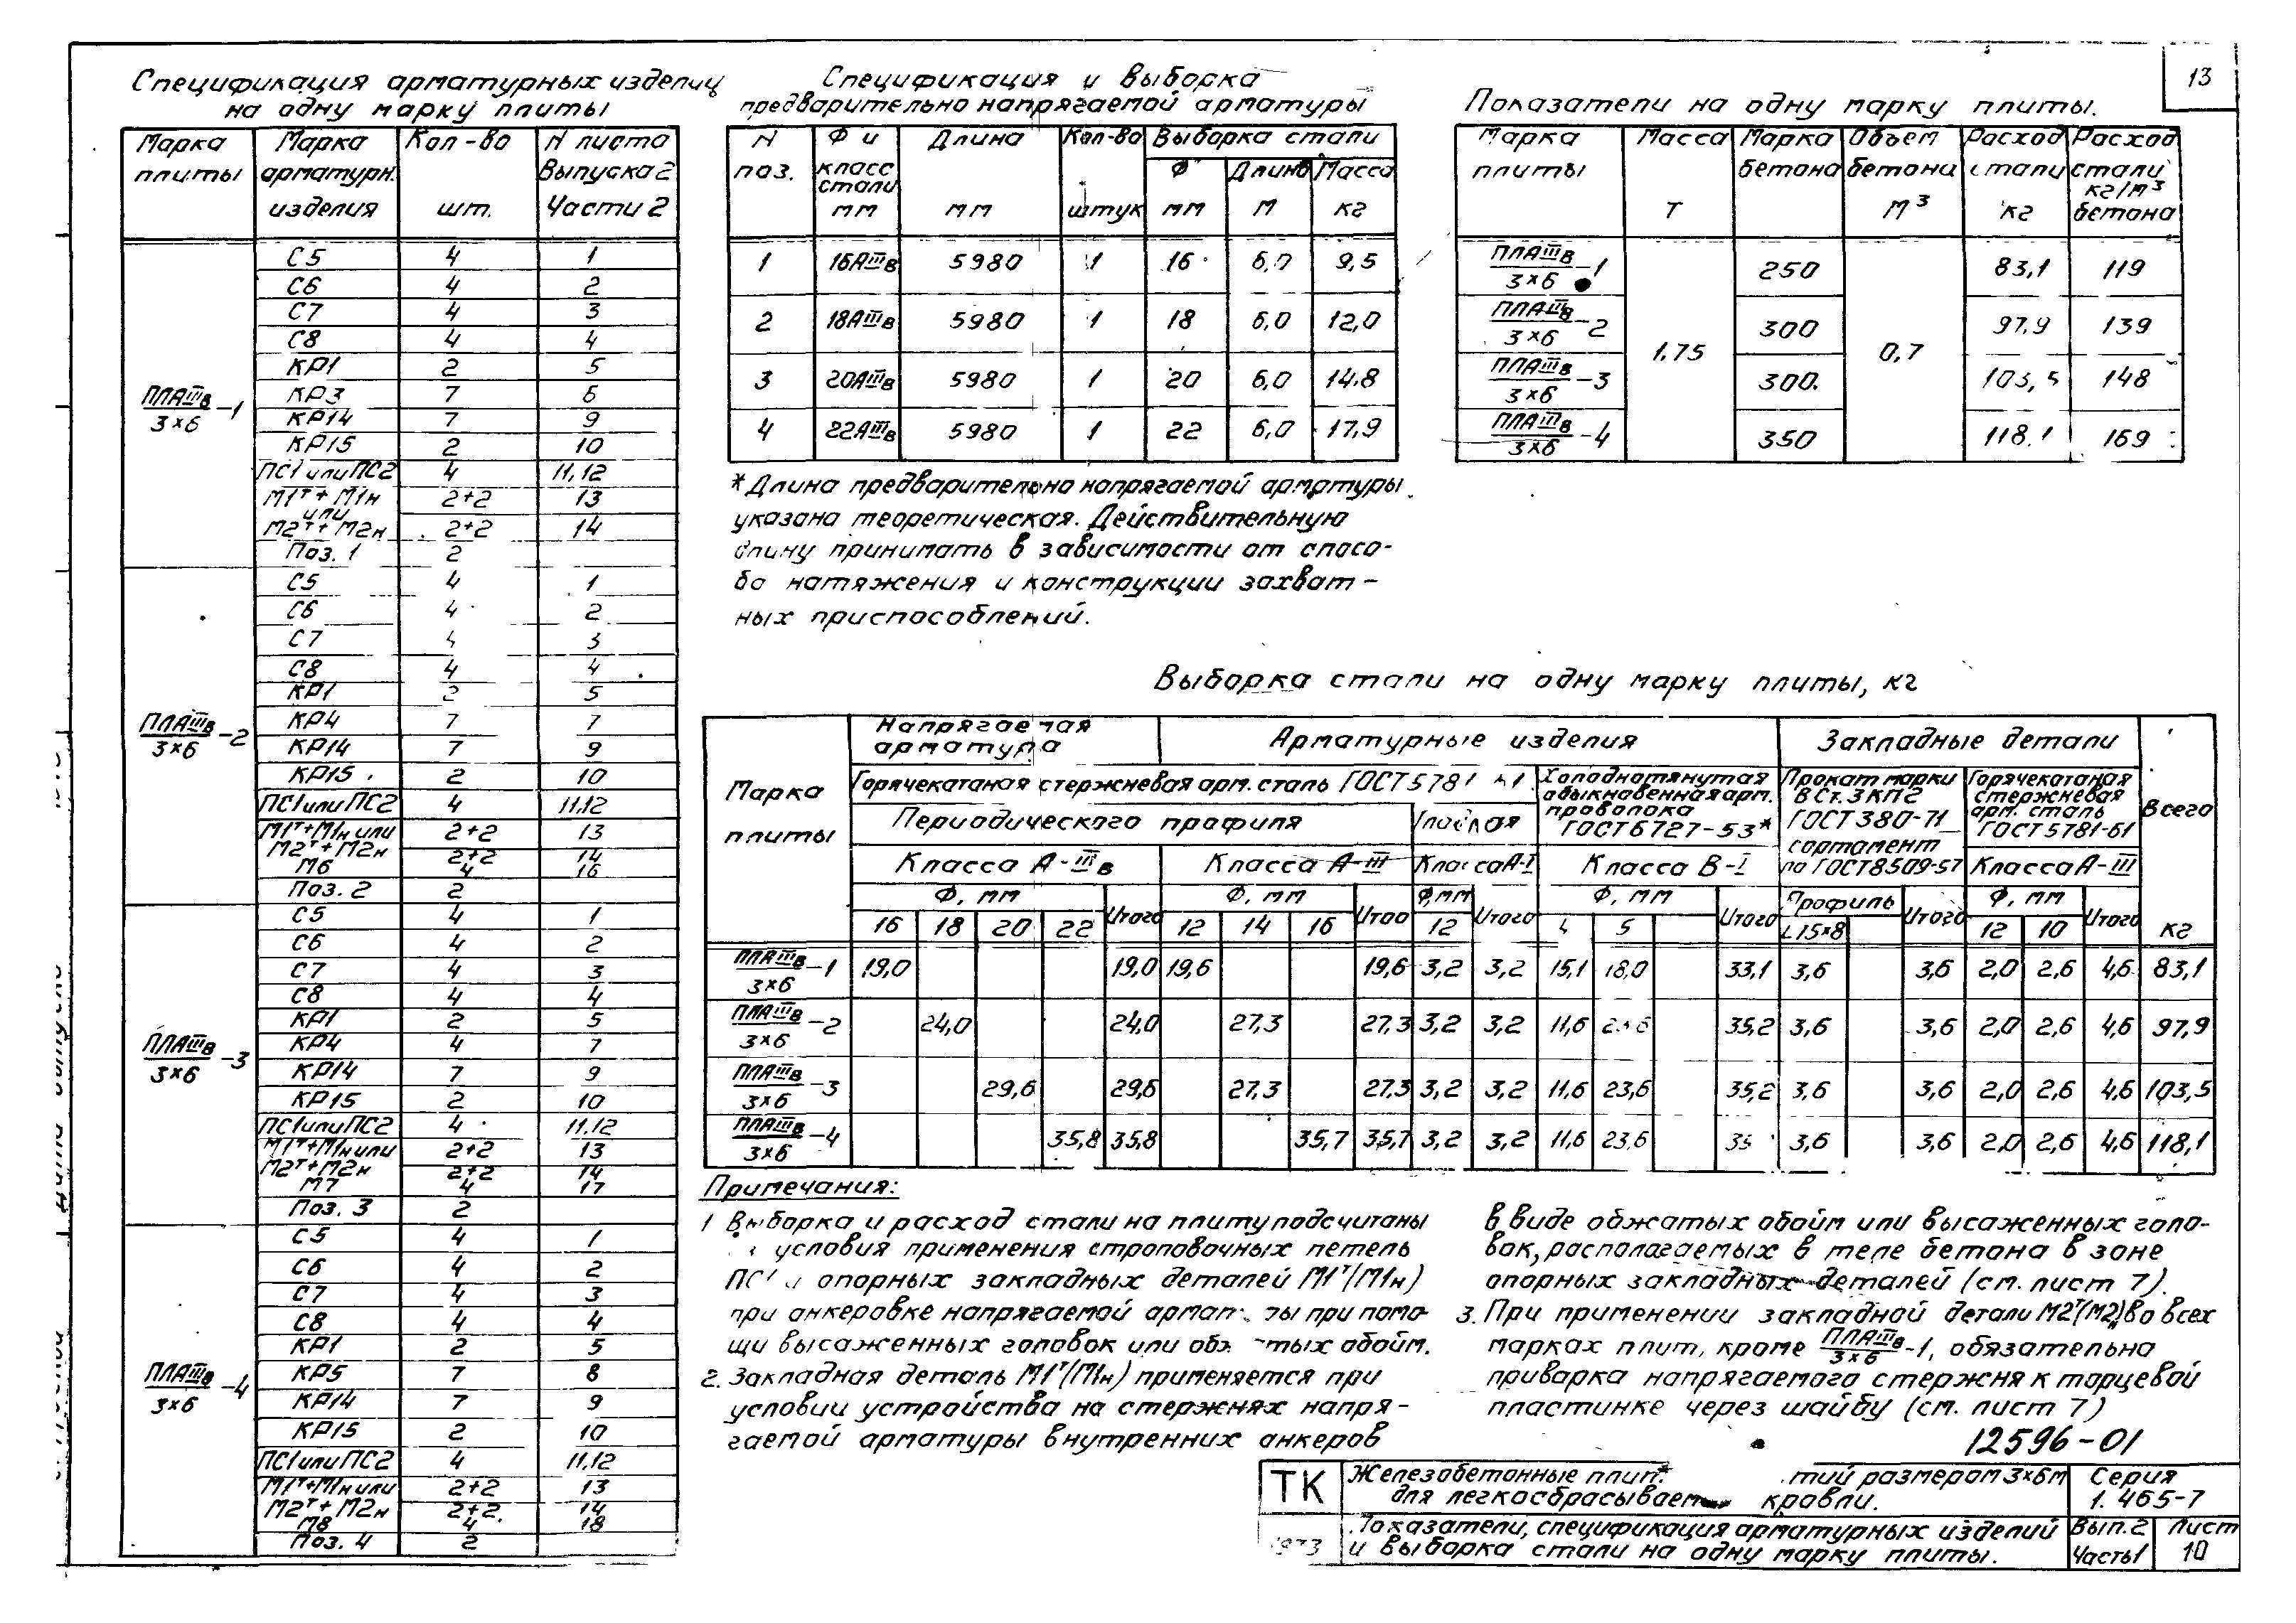 13
Спецификация арматурных изделий
на одну марку плиты
Марка плиты | Марка арматурн. изделия | Кол-во шт. | N листа Выпуска 2 Части 2
ПЛАIIIв/3×6-1
С5 4 1
С6 4 2
С7 4 3
С8 4 4
КР1 2 5
КР3 7 6
КР14 7 9
КР15 2 10
ПС1 или ПС2 4 11,12
М1т+М1н 2+2 13
или
М2т+М2н 2+2 14
Поз. 1 2
ПЛАIIIв/3×6-2
С5 4 1
С6 4 2
С7 4 3
С8 4 4
КР1 2 5
КР4 7 7
КР14 7 9
КР15 2 10
ПС1 или ПС2 4 11.12
М1т+М1н или 2+2 13
М2т+М2н 2+2 14
М6 4 16
Поз. 2 2
ПЛАIIIв/3×6-3
С5 4 1
С6 4 2
С7 4 3
С8 4 4
КР1 2 5
КР4 4 7
КР14 7 9
КР15 2 10
ПС1 или ПС2 4 11.12
М1т+М1н или 2+2 13
М2т+М2н 2+2 14
М7 4 17
Поз. 3 2
ПЛАIIIв/3×6-4
С5 4 1
С6 4 2
С7 4 3
С8 4 4
КР1 2 5
КР5 7 8
КР14 7 9
КР15 2 10
ПС1 или ПС2 4 11.12
М1т+М1н или 2+2 13
М2т+М2н 2+2 14
М8 4 18
Поз. 4 2
Спецификация и выборка
предварительно напрягаемой арматуры
N поз. | Ф и класс стали мм | Длина мм | Кол-во штук | Выборка стали
Ф мм | Длина м | Масса кг
1 16АIIIв 5980 1 16 6,0 9,5
2 18АIIIв 5980 1 18 6,0 12,0
3 20АIIIв 5980 1 20 6,0 14,8
4 22АIIIв 5980 1 22 6,0 17,9
* Длина предварительно напрягаемой арматуры
указана теоретическая. Действительную
длину принимать в зависимости от спосо-
ба натяжения и конструкции захват-
ных приспособлений.
Показатели на одну марку плиты.
Марка плиты | Масса т | Марка бетона | Объем бетона м³ | Расход стали кг | Расход стали кг/м³ бетона
ПЛАIIIв/3×6-1 1,75 250 0,7 83,1 119
ПЛАIIIв/3×6-2 300 97,9 139
ПЛАIIIв/3×6-3 300 103,5 148
ПЛАIIIв/3×6-4 350 118,1 169
Выборка стали на одну марку плиты, кг
Марка плиты | Напрягаемая арматура | Арматурные изделия | Закладные детали | Всего кг
Горячекатаная стержневая арм. сталь ГОСТ 5781-61 | Холоднотянутая обыкновенная арм. проволока ГОСТ 6727-53* | Прокат марки В Ст.3 КП2 ГОСТ 380-71 сортамент по ГОСТ 8509-57 | Горячекатаная стержневая арм. сталь ГОСТ 5781-61
Периодического профиля | Гладкая
Класса А-IIIв | Класса А-III | Класса А-I | Класса В-I | Класса А-III
Ф, мм | Итого | Ф, мм | Итого | Ф,мм | Итого | Ф, мм | Итого | Профиль | Итого | Ф, мм | Итого
16 18 20 22 12 14 16 12 4 5 L75×8 12 10
ПЛАIIIв/3×6-1 19,0 19,0 19,6 19,6 3,2 3,2 15,1 18,0 33,1 3,6 3,6 2,0 2,6 4,6 83,1
ПЛАIIIв/3×6-2 24,0 24,0 27,3 27,3 3,2 3,2 11,6 35,2 3,6 3,6 2,0 2,6 4,6 97,9
ПЛАIIIв/3×6-3 29,6 29,6 27,3 27,3 3,2 3,2 11,6 23,6 35,2 3,6 3,6 2,0 2,6 4,6 103,5
ПЛАIIIв/3×6-4 35,8 35,8 35,7 35,7 3,2 3,2 11,6 23,6 35 3,6 3,6 2,0 2,6 4,6 118,1
Примечания:
1 Выборка и расход стали на плиту подсчитаны
условия применения строповочных петель
ПС1 и опорных закладных деталей М1т(М1н)
при анкеровке напрягаемой арматуры при помо-
щи высаженных головок или обжатых обойм.
2. Закладная деталь М1т(М1н) применяется при
условии устройства на стержнях напря-
гаемой арматуры внутренних анкеров
в виде обжатых обойм или высаженных голо-
вок, располагаемых в теле бетона в зоне
опорных закладных деталей (см. лист 7).
3. При применении закладной детали М2т(М2н) во всех
марках плит, кроме ПЛАIIIв/3×6-1, обязательна
приварка напрягаемого стержня к торцевой
пластинке через шайбу (см. лист 7)
12596-01
ТК
Железобетонные плиты размером 3×6м
для легкосбрасываемой кровли.
Серия
1.465-7
1973
Показатели, спецификация арматурных изделий
и выборка стали на одну марку плиты.
Вып.2
Часть1
Лист
10